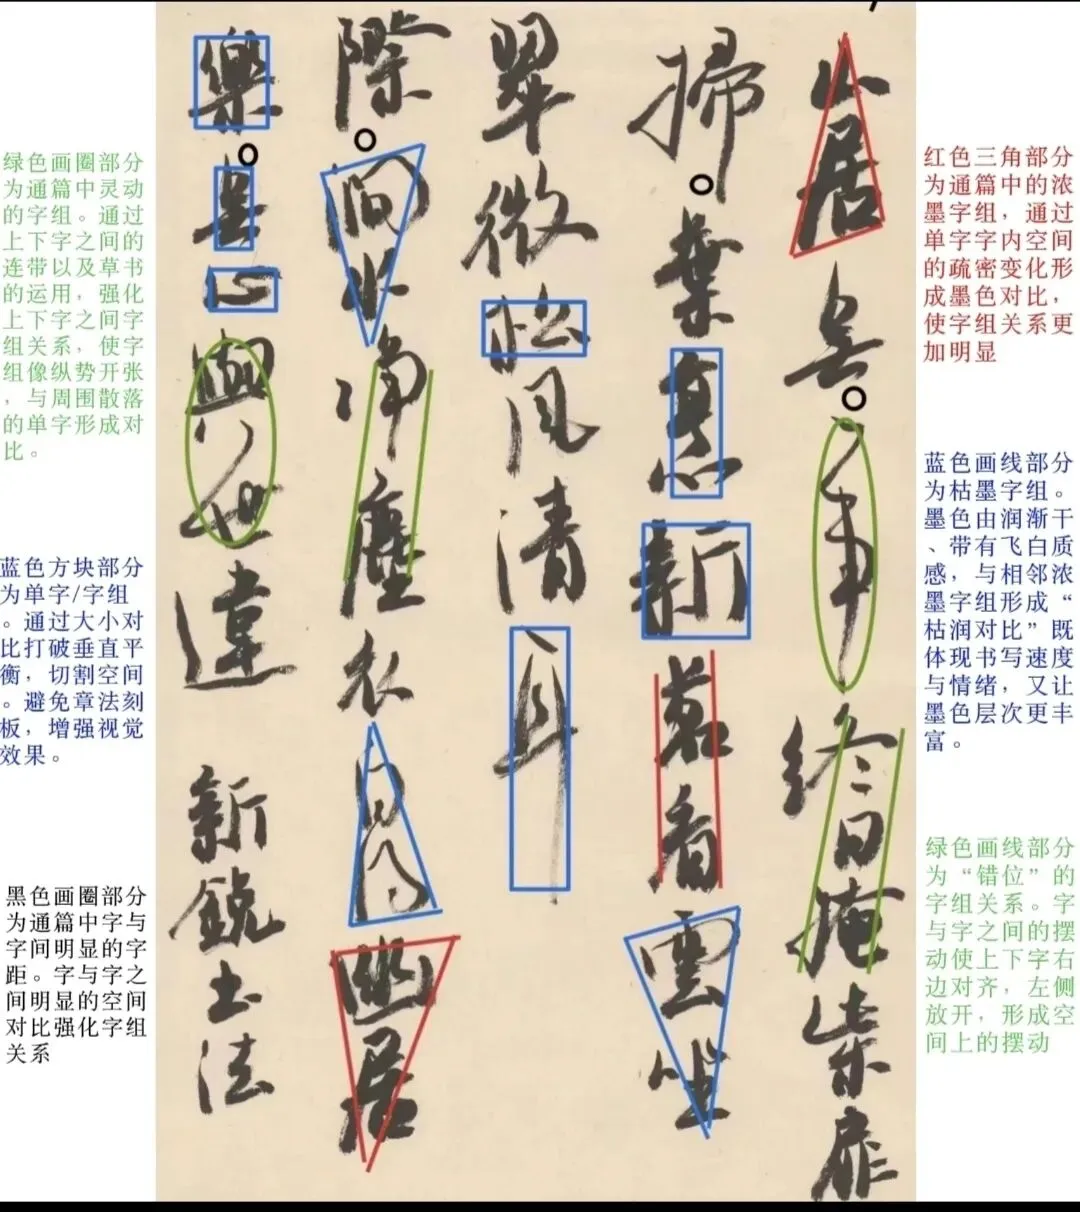 山居無一事終日掩柴扉
掃葉煮新茗看雲坐
翠微松風清耳
際澗水淨塵衣幽居
樂心與世違新銳書法
绿色画圈部分
为通篇中灵动
的字组。通过
上下字之间的
连带以及草书
的运用，强化
上下字之间字
组关系，使字
组像纵势开张
，与周围散落
的单字形成对
比。
蓝色方块部分
为单字/字组
。通过大小对
比打破垂直平
衡，切割空间
。避免章法刻
板，增强视觉
效果。
黑色画圈部分
为通篇中字与
字间明显的字
距。字与字之
间明显的空间
对比强化字组
关系
红色三角部分
为通篇中的浓
墨字组，通过
单字字内空间
的疏密变化形
成墨色对比，
使字组关系更
加明显
蓝色画线部分
为枯墨字组。
墨色由润渐干
、带有飞白质
感，与相邻浓
墨字组形成“
枯润对比”既
体现书写速度
与情绪，又让
墨色层次更丰
富。
绿色画线部分
为“错位”的
字组关系。字
与字之间的摆
动使上下字右
边对齐，左侧
放开，形成空
间上的摆动